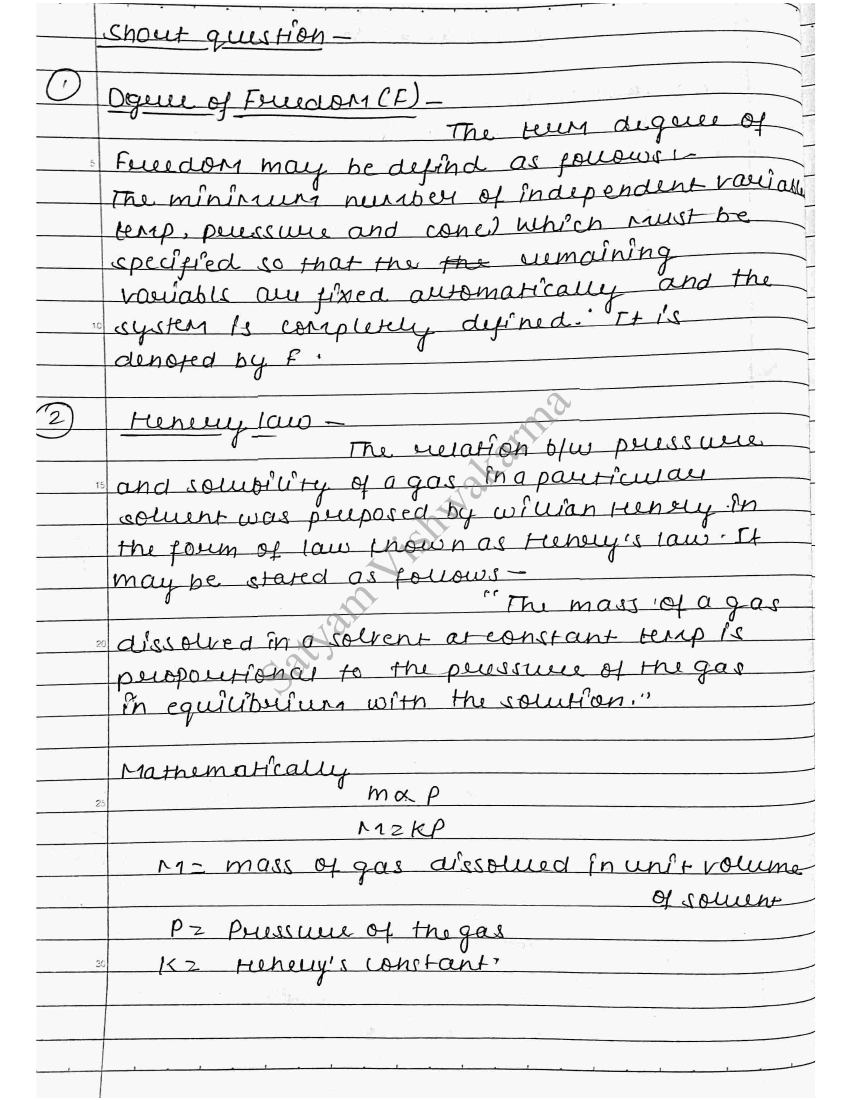 Short question –
1
Dgree of Freedom (F) –
The term degree of
5 Freedom may be defind as follows :-
The minimum number of independent variable
temp, pressure and conc) which must be
specified so that the the remaining
variabls are fixed automatically and the
10 system is completely defined. It is
denoted by F.
2
Henery law –
The relation b/w pressure
15 and solubility of a gas in a particular
solvent was preposed by willian Henery in
the form of law known as Henery's law. It
may be stated as follows –
"The mass of a gas
20 dissolved in a solvent at constant temp is
proportional to the pressure of the gas
in equilibrium with the solution."
Mathematically
25 m ∝ P
M = KP
M = mass of gas dissolved in unit volume
of solvent
P = Pressure of the gas
30 K = Henery's constant
Satyam Vishwakarma